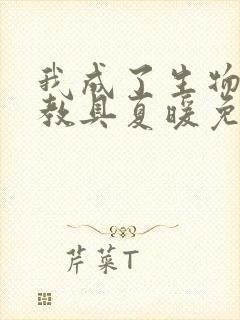 我成了生物
教具夏暖免
芹菜T